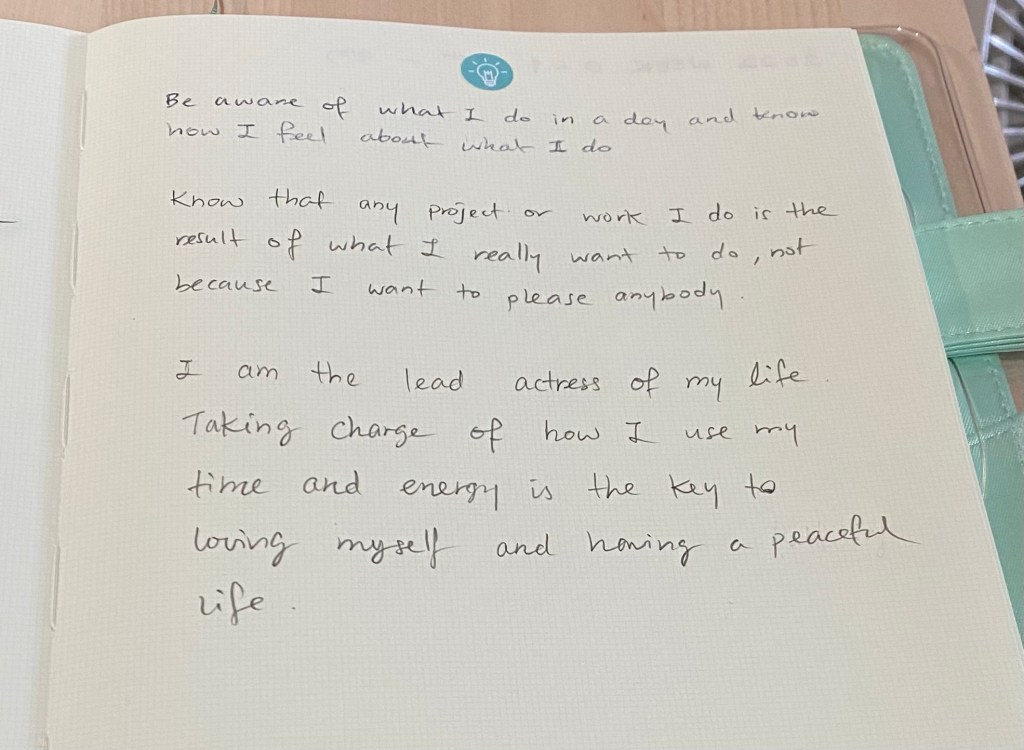 Be aware of what I do in a day and know
how I feel about what I do
Know that any project or work I do is the
result of what I really want to do, not
because I want to please anybody.
I am the lead actress of my life.
Taking charge of how I use my
time and energy is the key to
loving myself and having a peaceful
life.